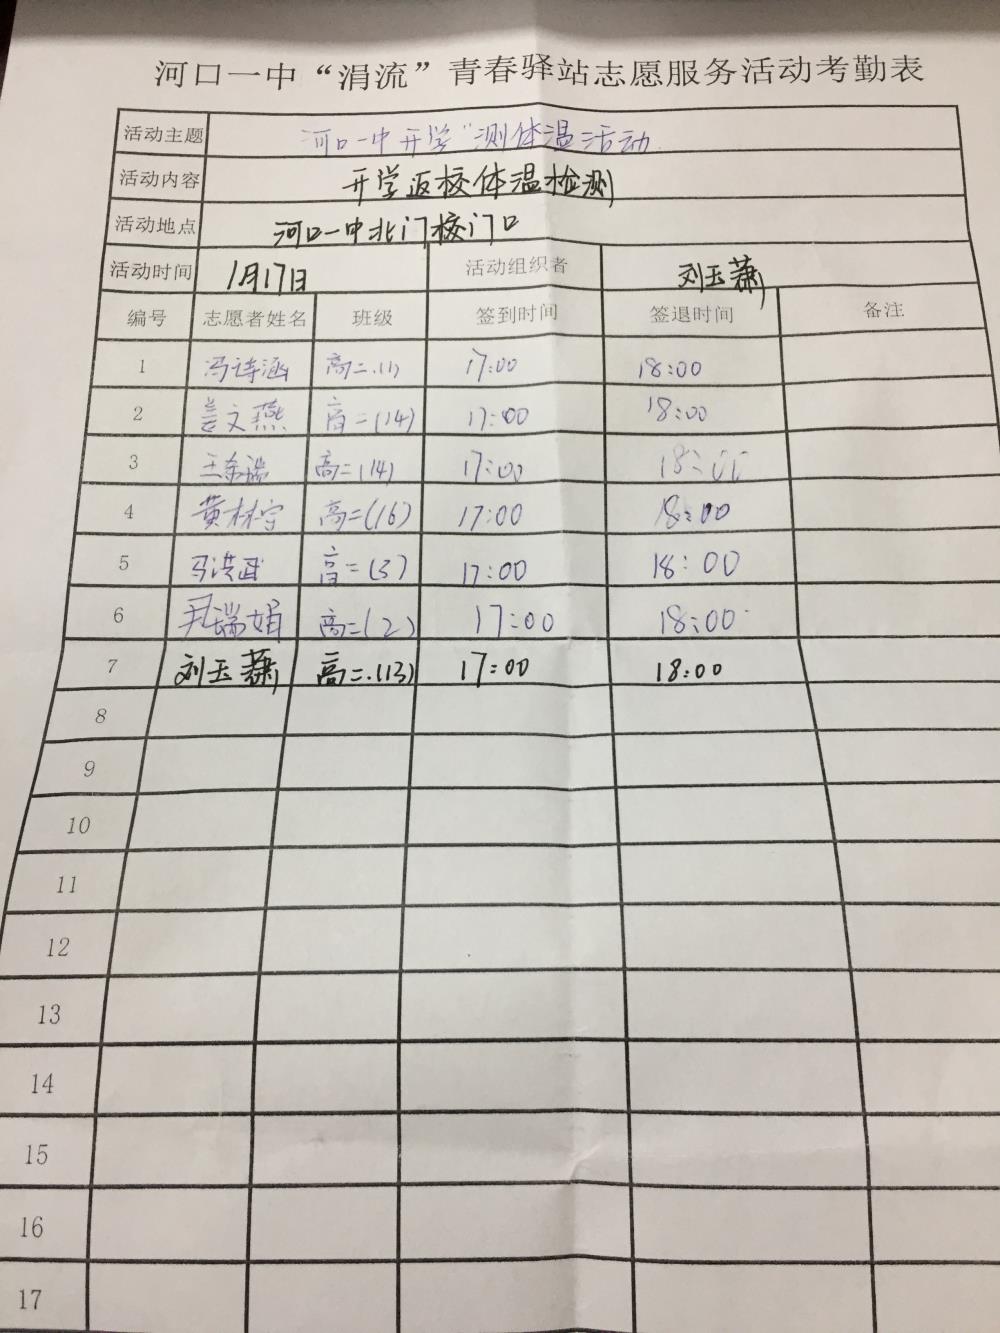 河口一中“涓流”青春驿站志愿服务活动考勤表
活动主题 河口一中开学"测体温活动
活动内容 开学返校体温检测
活动地点 河口一中北门校门口
活动时间 1月17日 活动组织者 刘玉萧
编号 志愿者姓名 班级 签到时间 签退时间 备注
1 冯诗涵 高二.(1) 17:00 18:00
2 姜文燕 高二(14) 17:00 18:00
3 高二(14) 17:00 18:00
4 黄林宁 高二(16) 17:00 18:00
5 马洪武 高二(3) 17:00 18:00
6 尹瑞娟 高二(2) 17:00 18:00
7 刘玉萧 高二.(13) 17:00 18:00
8
9
10
11
12
13
14
15
16
17